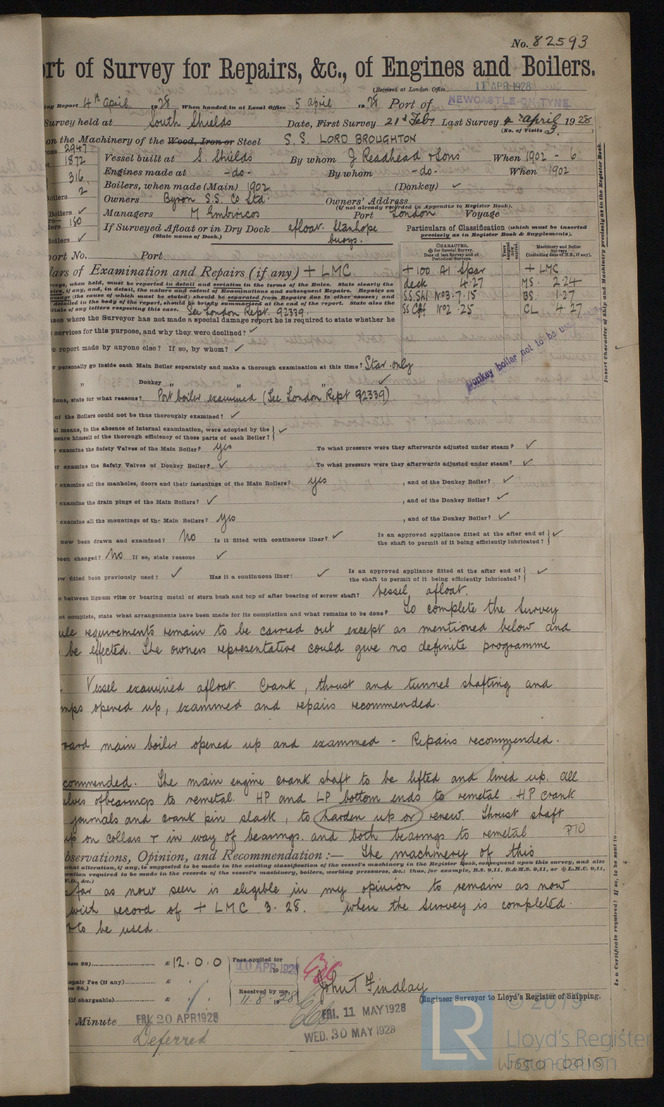 No. 82593
ort of Survey for Repairs, &c., of Engines and Boilers.
(Received at London Office 11 APR 1928
ing Report 4th april 1928 When handed in at Local Office 5 april 1928 Port of NEWCASTLE-ON-TYNE
Survey held at South Shields Date, First Survey 21st Feby Last Survey 4 april 1928
(No. of Visits 3)
on the Machinery of the Wood, Iron or Steel S.S. LORD BROUGHTON
2947
1872 Vessel built at S. Shields By whom J Readhead & Sons When 1902 - 6
316 Engines made at -do- By whom -do- When 1902
2 Boilers, when made (Main) 1902 (Donkey) ✓
Owners Byron S.S. Co Ltd Owners' Address
(if not already recorded in Appendix to Register Book).
180 Managers M Embiricos Port London Voyage
If Surveyed Afloat or in Dry Dock afloat. Stanhope buoys.
(State name of Dock.)
Particulars of Classification (which must be inserted precisely as in Register Book & Supplements).
port No. Port
lars of Examination and Repairs (if any) + LMC
+100 A1 Spar + LMC
deck 4.27 MS 2.24
SS SHl No3-7.15 BS 1.27
SS Cff No2 .25 CL 4.27
See London Rept. 92339.
Donkey boiler not to be
services for this purpose, and why were they declined? ✓
report made by anyone else? If so, by whom? ✓
personally go inside each Main Boiler separately and make a thorough examination at this time? Star. only
" Donkey " " ✓
ons, state for what reasons? Port boiler examined (See London Rept 92339)
of the Boilers could not be thus thoroughly examined? ✓
al means, in the absence of internal examination, were adopted by the
sure himself of the thorough efficiency of those parts of each Boiler? ✓
examine the Safety Valves of the Main Boiler? yes To what pressure were they afterwards adjusted under steam? ✓
examine the Safety Valves of Donkey Boiler? ✓ To what pressure were they afterwards adjusted under steam? ✓
examine all the manholes, doors and their fastenings of the Main Boilers? yes , and of the Donkey Boiler? ✓
examine the drain plugs of the Main Boilers? ✓ , and of the Donkey Boiler? ✓
examine all the mountings of the Main Boilers? yes , and of the Donkey Boiler? ✓
now been drawn and examined? No Is it fitted with continuous liner? ✓ Is an approved appliance fitted at the after end of the shaft to permit of it being efficiently lubricated? ✓
been changed? No If so, state reasons ✓
w fitted been previously used? ✓ Has it a continuous liner? ✓ Is an approved appliance fitted at the after end of the shaft to permit of it being efficiently lubricated? ✓
between lignum vitæ or bearing metal of stern bush and top of after bearing of screw shaft? Vessel afloat.
not complete, state what arrangements have been made for its completion and what remains to be done? To complete the Survey
ule requirements remain to be carried out except as mentioned below and
be effected. The owners representative could give no definite programme
Vessel examined afloat. Crank, thrust and tunnel shafting and
mps opened up, examined and repairs recommended.
oard main boiler opened up and examined - Repairs recommended.
commended. The main engine crank shaft to be lifted and lined up. all
lves of bearings to remetal. HP and LP bottom ends to remetal HP crank
journals and crank pin slack, to harden up or renew. Thrust shaft
up on collars & in way of bearings. and both bearings to remetal PTO
bservations, Opinion, and Recommendation :— The machinery of this
far as now seen is eligible in my opinion to remain as now
with record of + LMC 3.28. when the Survey is completed.
to be used.
£ 12.0.0 Fees applied for 10 APR 1928
epair Fee (if any) £
(if chargeable) £ Received by me, 11.8.28
John T Findlay
Engineer Surveyor to Lloyd's Register of Shipping.
Minute FRI. 20 APR 1928 FRI. 11 MAY 1928
Deferred WED. 30 MAY 1928
LR
© 2019
Lloyd's Register
Foundation
W550-0015